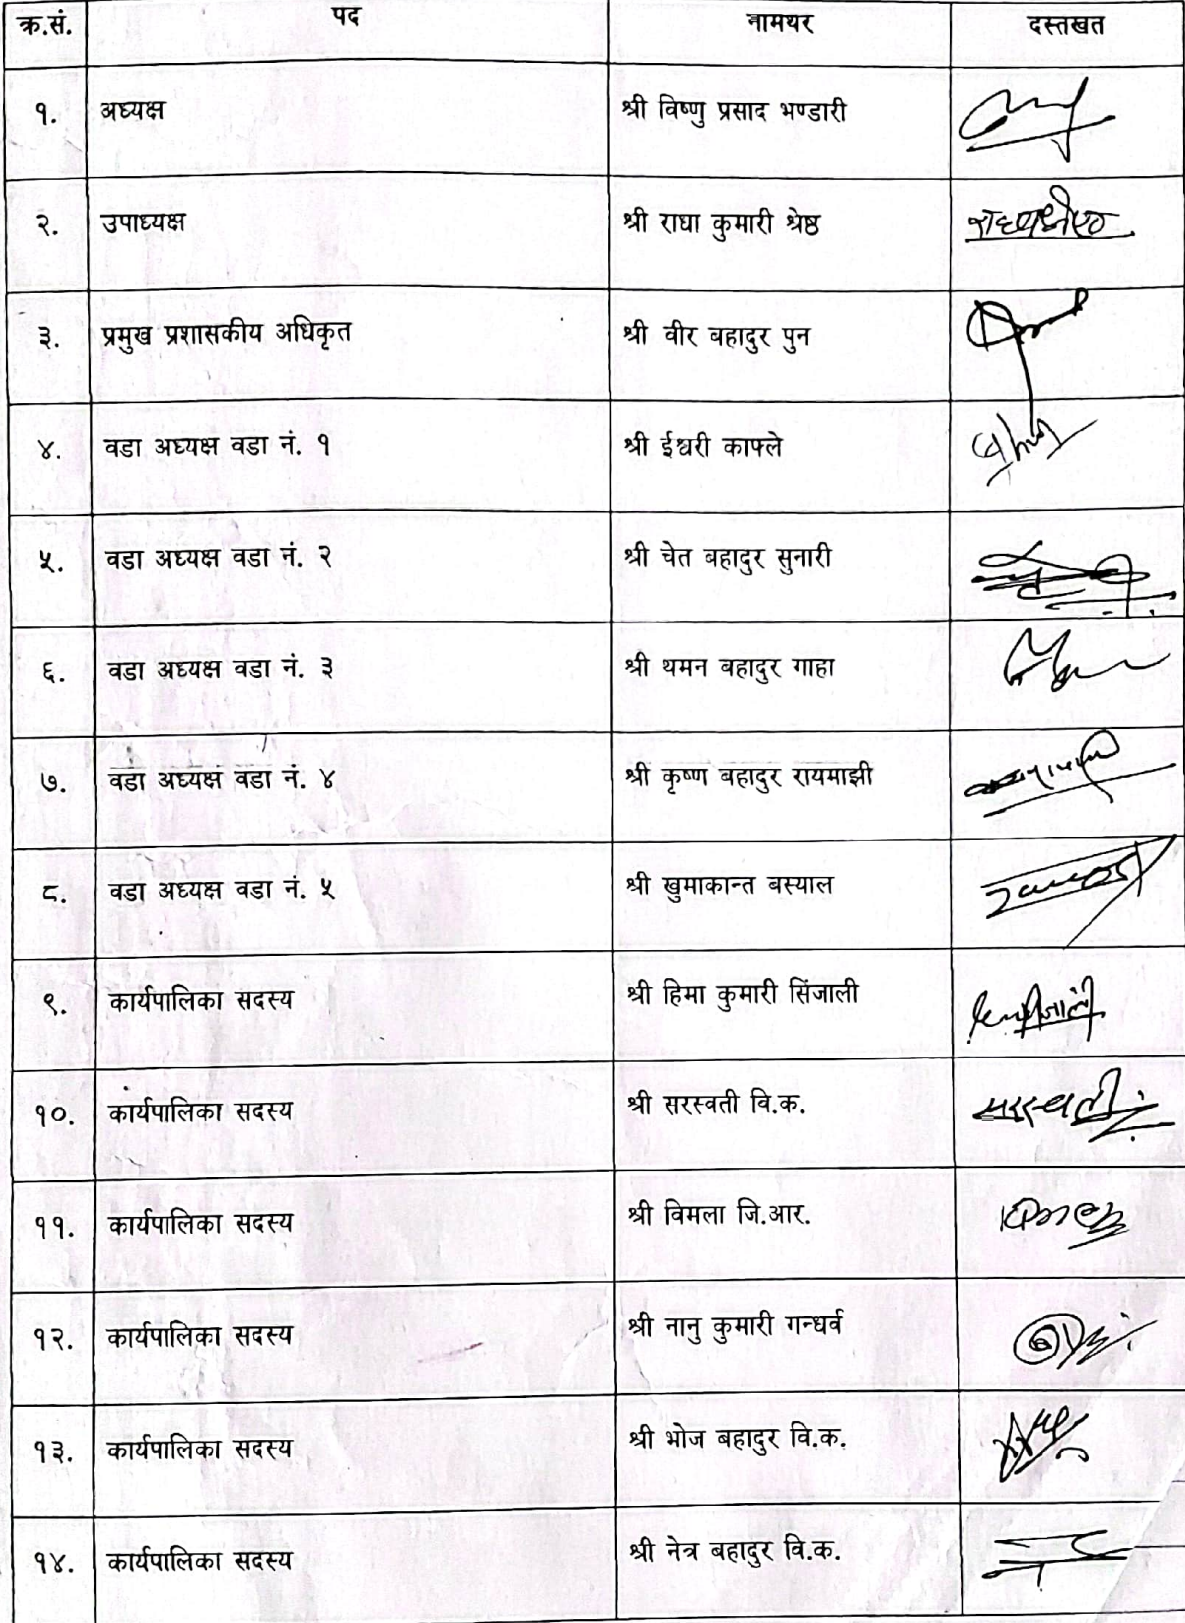 क्र.सं. पद नामथर दस्तखत
१. अध्यक्ष श्री विष्णु प्रसाद भण्डारी
२. उपाध्यक्ष श्री राधा कुमारी श्रेष्ठ
३. प्रमुख प्रशासकीय अधिकृत श्री वीर बहादुर पुन
४. वडा अध्यक्ष वडा नं. १ श्री ईश्वरी काफ्ले
५. वडा अध्यक्ष वडा नं. २ श्री चेत बहादुर सुनारी
६. वडा अध्यक्ष वडा नं. ३ श्री थमन बहादुर गाहा
७. वडा अध्यक्ष वडा नं. ४ श्री कृष्ण बहादुर रायमाझी
८. वडा अध्यक्ष वडा नं. ५ श्री खुमाकान्त बस्याल
९. कार्यपालिका सदस्य श्री हिमा कुमारी सिंजाली
१०. कार्यपालिका सदस्य श्री सरस्वती वि.क. सरस्वती
११. कार्यपालिका सदस्य श्री विमला जि.आर.
१२. कार्यपालिका सदस्य श्री नानु कुमारी गन्धर्व
१३. कार्यपालिका सदस्य श्री भोज बहादुर वि.क.
१४. कार्यपालिका सदस्य श्री नेत्र बहादुर वि.क.